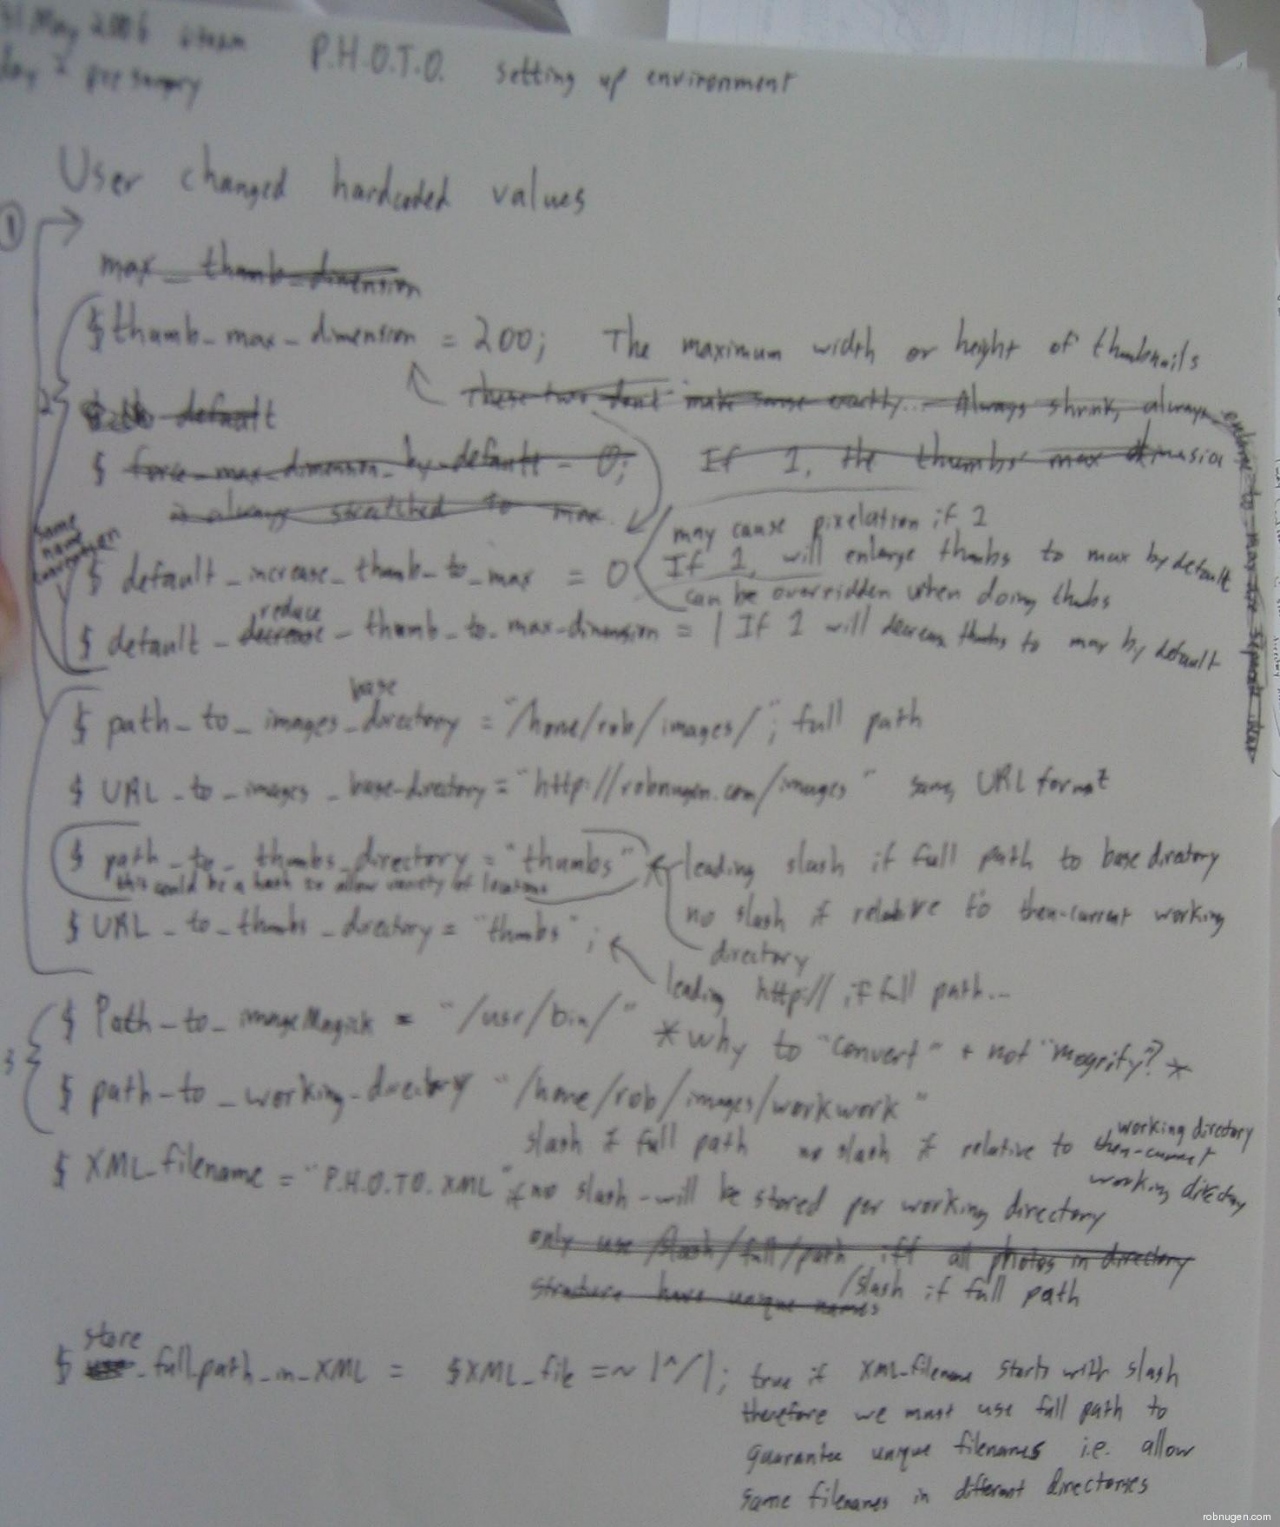 May 2006
P.H.O.T.O. setting up environment
User changed hardcoded values
1
max_thumb_dimension
2
$ thumb_max_dimension = 200; The maximum width or height of thumbnails
These two dont make sense exactly... Always shrink, always enlarge to max are separate
default
$ force_max_dimension_by_default = 0; If 1, the thumbs max dimension
is always stretched to max.
same name
may cause pixelation if 1
$ default_increase_thumb_to_max = 0 If 1, will enlarge thumbs to max by default
can be overridden when doing thumbs
reduce
$ default_decrease_thumb_to_max_dimension = 1 If 1 will decrease thumbs to max by default
base
$ path_to_images_directory = "/home/rob/images/"; full path
$ URL_to_images_base_directory = "http://robnugen.com/images" same, URL format
$ path_to_thumbs_directory = "thumbs" leading slash if full path to base directory
this could be a hash to allow variety of locations
no slash if relative to then-current working
directory
$ URL_to_thumbs_directory = "thumbs";
leading http:// if full path...
3
$ Path_to_imageMagick = "/usr/bin/" * Why to "convert" + not "mogrify"? *
$ path_to_working_directory "/home/rob/images/workwork"
slash if full path no slash if relative to then-current
working directory
working directory
$ XML_filename = "P.H.O.T.O.XML" * no slash - will be stored per working directory
only use /slash/full/path iff all photos in directory
structure have unique names
/slash if full path
store
$ use_full_path_in_XML = $XML_file =~ |^/|; true if XML_filename starts with slash
therefore we must use full path to
guarantee unique filenames i.e. allow
same filenames in different directories
robnugen.com